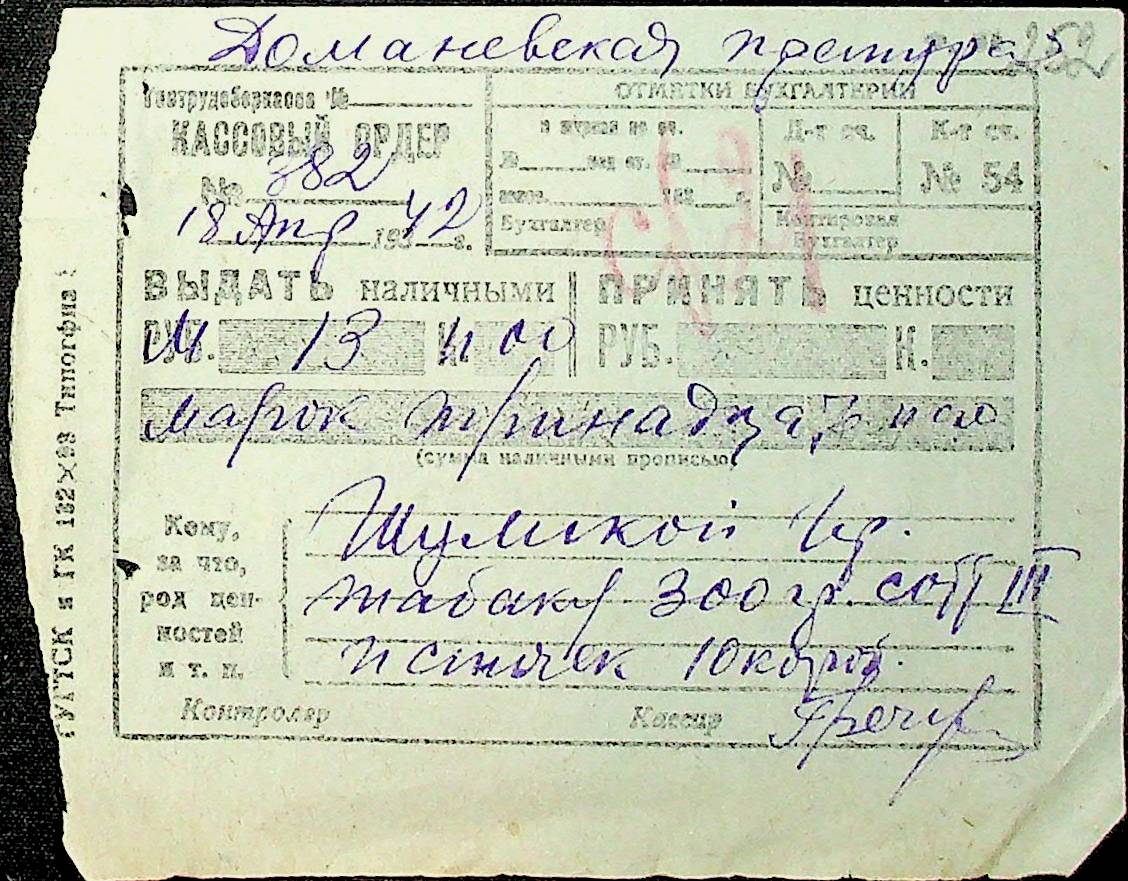 Доманевская претура
252
Гострудсберкасса №
КАССОВЫЙ ОРДЕР
№ 382
18 Апр 193 42 г.
ОТМЕТКИ БУХГАЛТЕРИИ
№
193 г.
Бухгалтер
Д-т сч.
№
К-т сч.
№ 54
Контировал
Бухгалтер
ВЫДАТЬ наличными
РУБ. 13 К. 00
ПРИНЯТЬ ценности
РУБ. К.
марок тринадцать
(сумма наличными прописью)
Кому,
за что,
род цен-
ностей
и т. п.
табаку 300 гр. сорт III
и спичек 10 короб.
Контролер
Кассир
ГУГТСК и ГК 162×93 Типогфия